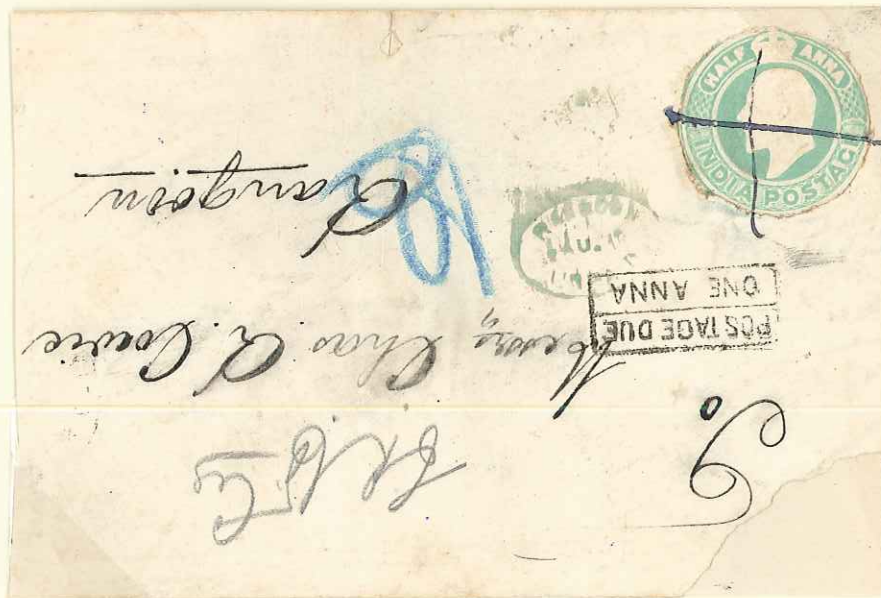 HALF ANNA
INDIA POSTAGE
POSTAGE DUE
ONE ANNA
To
Messrs Chas R. Cowie
Rangoon